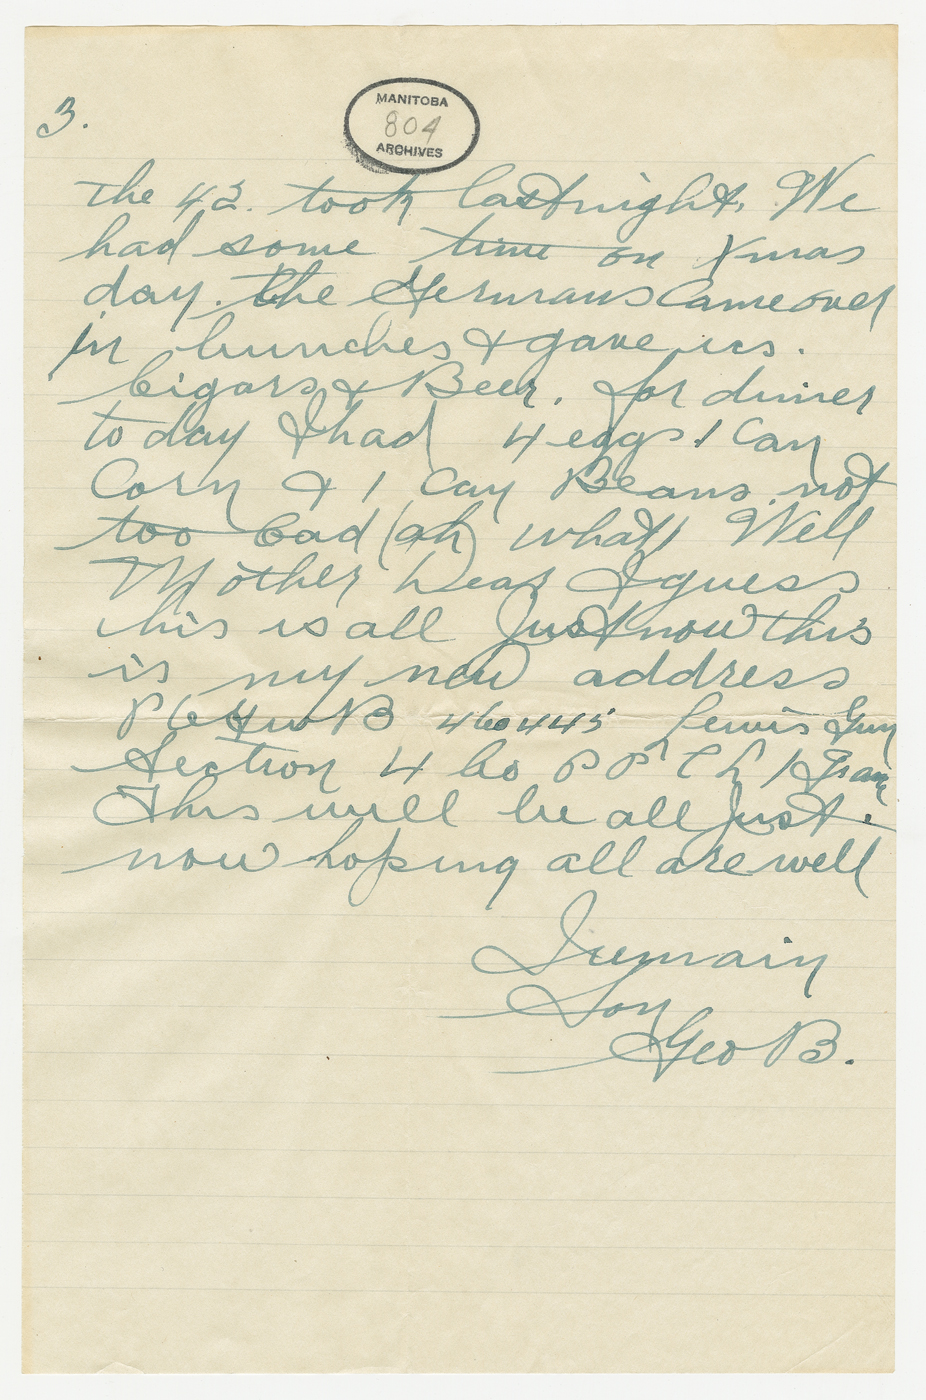 3.
MANITOBA
804
ARCHIVES
the 42. took last night. We
had some time on Xmas
day. the Germans came over
in bunches & gave us.
Cigars & Beer. for dinner
to day I had 4 eggs 1 Can
Corn & 1 Can Beans. not
too bad (ah) what! Well
Mother Dear I guess
this is all Just now this
is my new address
Pte 460445 Lewis Gun
Section 4 Co P P C L I France
This will be all Just.
now hoping all are well
I remain
Son
Geo B.